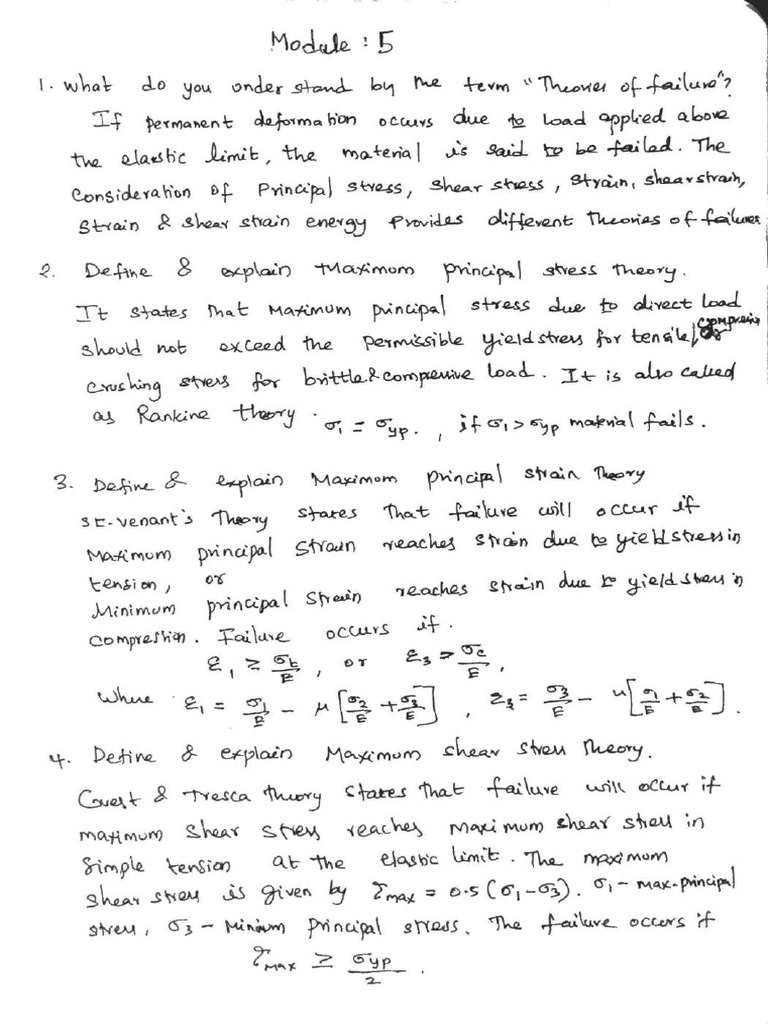 Module : 5
1. What do you under stand by the term "Theories of failure"?
If permanent deformation occurs due to Load applied above
the elastic limit, the material is said to be failed. The
Consideration of Principal stress, shear stress, strain, shear strain,
Strain & shear strain energy provides different Theories of failures
2. Define & explain Maximum principal stress Theory.
It states that Maximum principal stress due to direct load
should not exceed the permissible yield stress for tensile/ compressive
crushing stress for brittle & compressive load. It is also called
as Rankine theory. σ1 = σyp. , if σ1 > σyp material fails.
3. Define & explain Maximum principal strain Theory
St-venant's Theory states that failure will occur if
Maximum principal strain reaches strain due to yield stress in
tension, or
Minimum principal strain reaches strain due to yield stress in
compression. Failure occurs if.
ε1 ≥ σt/E , or ε3 ≥ σc/E ,
where ε1 = σ1/E - μ[σ2/E + σ3/E] , ε3 = σ3/E - μ[σ1/E + σ2/E] .
4. Define & explain Maximum shear stress Theory.
Guest & Tresca theory states that failure will occur if
maximum shear stress reaches maximum shear stress in
simple tension at the elastic limit. The maximum
shear stress is given by τmax = 0.5(σ1-σ3). σ1 - max-principal
stress, σ3 - Minimum principal stress. The failure occurs if
τmax ≥ σyp/2 .